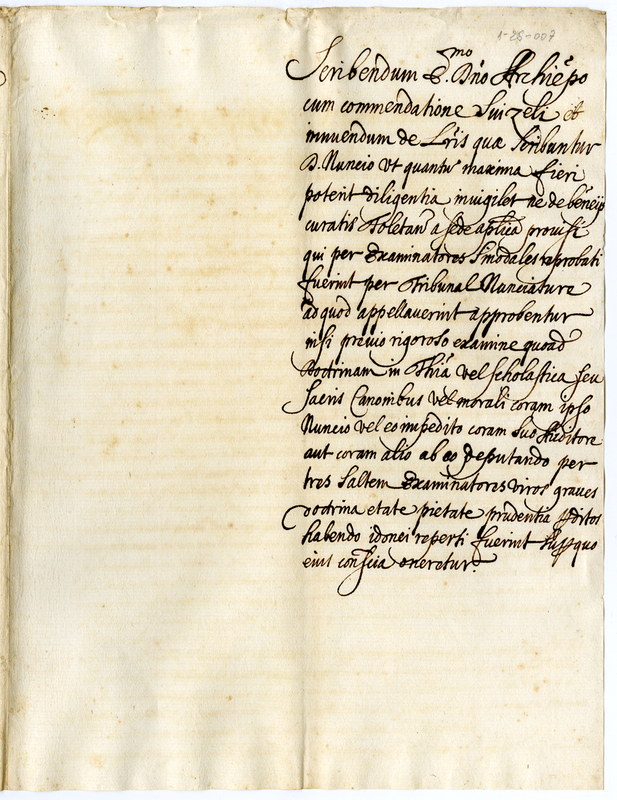 1-28-007
Scribendum E.mo Dño Archiẽpo
cum commendatione sui zeli et
innuendum de Lr̃is quæ scribuntur
D. Nuncio vt quantũ maxima fieri
poterit diligentia inuigilet ne de benẽijs
curatis Toletan̄ a sede aplica prouisi
qui per Examinatores Sinodales reprobati
fuerint per Tribunal Nunciature
ad quod appellauerint approbentur
nisi preuio rigoroso examine quoad
Doctrinam in Thĩa vel scholastica seu
sacris Canonibus vel morali coram ipso
Nuncio vel eo impedito coram suo Auditore
aut coram alio ab eo deputando per
tres saltem Examinatores viros graues
doctrina etate pietate prudentia p̃ditos
habendo idonei reperti fuerint super quo
eius conscĩa oneretur.